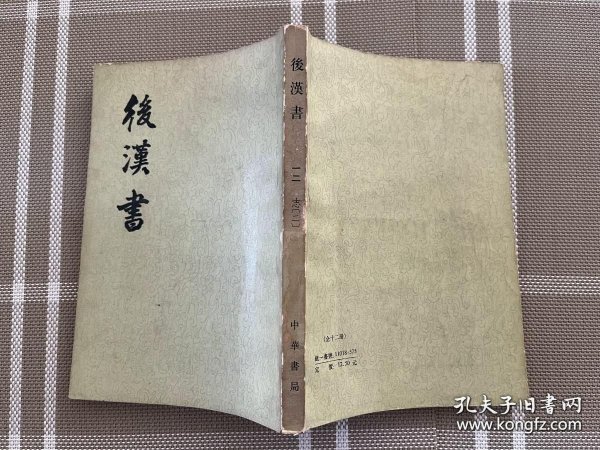 後漢書
後漢書
志〔二〕
中華書局
(全十二冊)
統一書號:11018·575
定價:12.50元
孔夫子旧书网
www.kongfz.com